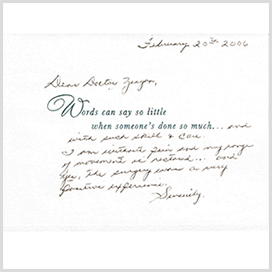 February 20th 2006
Dear Doctor
Words can say so little
when someone's done so much... and
with such skill & care.
I am without pain and my range
of movement is restored... and
yes, the surgery was a very
positive experience.
Sincerely,